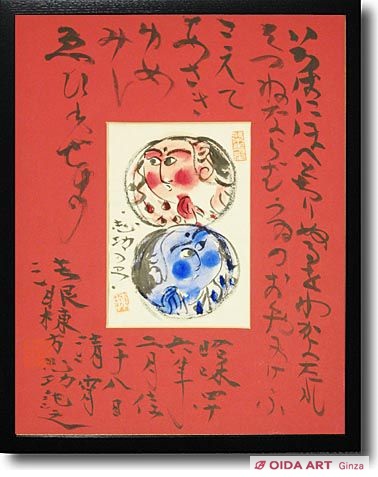 いろはにほへとちりぬるをわかよたれ
そつねならむうゐのおくやまけふ
こえて
あさき
ゆめ
みし
ゑひもせす
六年
二月佳
二十八日
清宵
棟方志功記之
OIDA ART Ginza